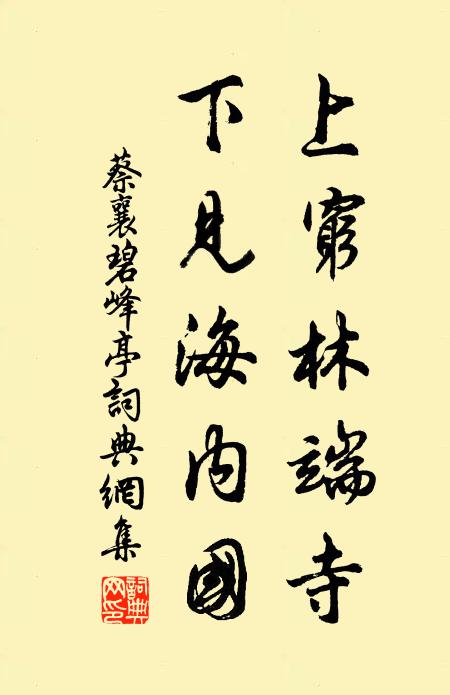 上窮林端寺
下見海内國
蔡襄碧峰亭詞典網集
詞典網印